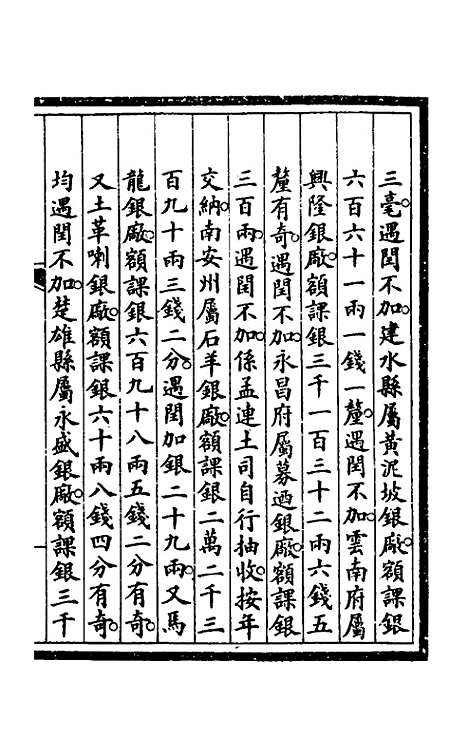 三毫。遇閏不加。建水縣屬黃泥坡銀廠。額課銀
六百六十一兩一錢一釐。遇閏不加。雲南府屬
興隆銀廠。額課銀三千一百三十二兩六錢五
釐有奇。遇閏不加。永昌府屬募迺銀廠。額課銀
三百兩。遇閏不加。係孟連土司自行抽收。按年
交納。南安州屬石羊銀廠。額課銀二萬二千三
百九十兩三錢二分。遇閏加銀二十九兩。又馬
龍銀廠。額課銀六百九十八兩五錢二分有奇。
又土革喇銀廠。額課銀六十兩八錢四分有奇。
均遇閏不加。楚雄縣屬永盛銀廠。額課銀三千